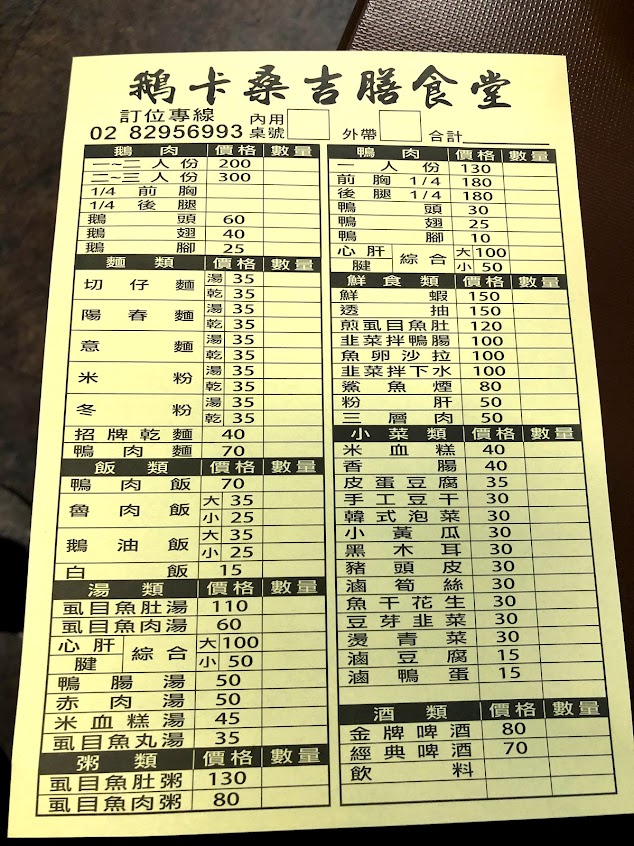 鵝卡桑吉膳食堂
訂位專線
02 82956993
內用
桌號
外帶
合計
鵝肉 價格 數量
一~二人份 200
二~三人份 300
1/4 前胸
1/4 後腿
鵝頭 60
鵝翅 40
鵝腳 25
麵類 價格 數量
切仔麵 湯 35
乾 35
陽春麵 湯 35
乾 35
意麵 湯 35
乾 35
米粉 湯 35
乾 35
冬粉 湯 35
乾 35
招牌乾麵 40
鴨肉麵 70
飯類 價格 數量
鴨肉飯 70
魯肉飯 大 35
小 25
鵝油飯 大 35
小 25
白飯 15
湯類 價格 數量
虱目魚肚湯 110
虱目魚肉湯 60
心肝腱 綜合 大 100
小 50
鴨腸湯 50
赤肉湯 50
米血糕湯 45
虱目魚丸湯 35
粥類 價格 數量
虱目魚肚粥 130
虱目魚肉粥 80
鴨肉 價格 數量
一人份 130
前胸 1/4 180
後腿 1/4 180
鴨頭 30
鴨翅 25
鴨腳 10
心肝腱 綜合 大 100
小 50
鮮食類 價格 數量
鮮蝦 150
透抽 150
煎虱目魚肚 120
韭菜拌鴨腸 100
魚卵沙拉 100
韭菜拌下水 100
鯊魚煙 80
粉肝 50
三層肉 50
小菜類 價格 數量
米血糕 40
香腸 40
皮蛋豆腐 35
手工豆干 30
韓式泡菜 30
小黃瓜 30
黑木耳 30
豬頭皮 30
滷筍絲 30
魚干花生 30
豆芽韭菜 30
燙青菜 30
滷豆腐 15
滷鴨蛋 15
酒類 價格 數量
金牌啤酒 80
經典啤酒 70
飲料